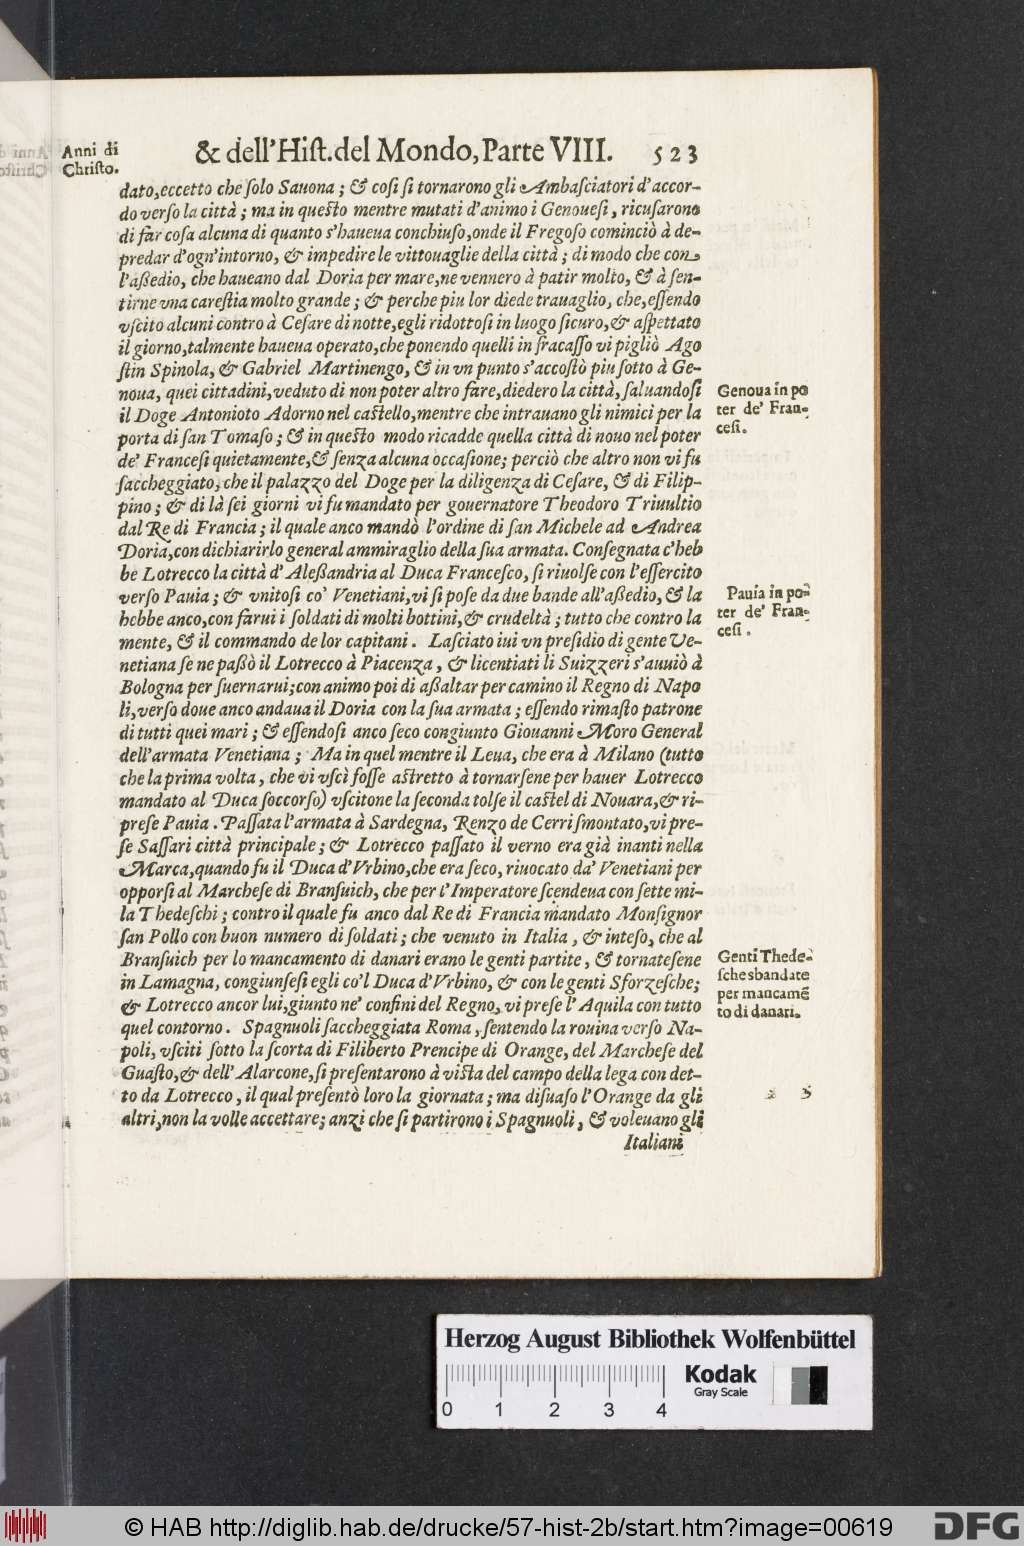 Anni di
Christo.
& dell'Hist. del Mondo, Parte VIII. 523
dato, eccetto che solo Sauona; & cosi si tornarono gli Ambasciatori d'accor-
do verso la città; ma in questo mentre mutati d'animo i Genouesi, ricusarono
di far cosa alcuna di quanto s'haueua conchiuso, onde il Fregoso cominciò à de-
predar d'ogn'intorno, & impedire le vittouaglie della città; di modo che con
l'aßedio, che haueano dal Doria per mare, ne vennero à patir molto, & à sen-
tirne vna carestia molto grande; & perche piu lor diede trauaglio, che, essendo
vscito alcuni contro à Cesare di notte, egli ridottosi in luogo sicuro, & aspettato
il giorno, talmente haueua operato, che ponendo quelli in fracasso vi pigliò Ago
stin Spinola, & Gabriel Martinengo, & in vn punto s'accostò piu sotto à Ge-
noua, quei cittadini, veduto di non poter altro fare, diedero la città, saluandosi
il Doge Antonioto Adorno nel castello, mentre che intrauano gli nimici per la
porta di san Tomaso; & in questo modo ricadde quella città di nouo nel poter
de' Francesi quietamente, & senza alcuna occasione; perciò che altro non vi fu
saccheggiato, che il palazzo del Doge per la diligenza di Cesare, & di Filip-
pino; & di là sei giorni vi fu mandato per gouernatore Theodoro Triuultio
dal Re di Francia; il quale anco mandò l'ordine di san Michele ad Andrea
Doria, con dichiarirlo general ammiraglio della sua armata. Consegnata c'heb
be Lotrecco la città d'Aleßandria al Duca Francesco, si riuolse con l'essercito
verso Pauia; & vnitosi co' Venetiani, vi si pose da due bande all'aßedio, & la
hebbe anco, con farui i soldati di molti bottini, & crudeltà; tutto che contro la
mente, & il commando de lor capitani. Lasciato iui vn presidio di gente Ve-
netiana se ne paßò il Lotrecco à Piacenza, & licentiati li Suizzeri s'auuiò à
Bologna per suernarui; con animo poi di aßaltar per camino il Regno di Napo
li, verso doue anco andaua il Doria con la sua armata; essendo rimasto patrone
di tutti quei mari; & essendosi anco seco congiunto Giouanni Moro General
dell'armata Venetiana; Ma in quel mentre il Leua, che era à Milano (tutto
che la prima volta, che vi vscì fosse astretto à tornarsene per hauer Lotrecco
mandato al Duca soccorso) vscitone la seconda tolse il castel di Nouara, & ri-
prese Pauia. Passata l'armata à Sardegna, Renzo de Cerri smontato, vi pre-
se Sassari città principale; & Lotrecco passato il verno era già inanti nella
Marca, quando fu il Duca d'Vrbino, che era seco, riuocato da' Venetiani per
opporsi al Marchese di Bransuich, che per l'Imperatore scendeua con sette mi-
la Thedeschi; contro il quale fu anco dal Re di Francia mandato Monsignor
san Pollo con buon numero di soldati; che venuto in Italia, & inteso, che al
Bransuich per lo mancamento di danari erano le genti partite, & tornatesene
in Lamagna, congiunsesi egli co'l Duca d'Vrbino, & con le genti Sforzesche;
& Lotrecco ancor lui, giunto ne' confini del Regno, vi prese l'Aquila con tutto
quel contorno. Spagnuoli saccheggiata Roma, sentendo la rouina verso Na-
poli, vsciti sotto la scorta di Filiberto Prencipe di Orange, del Marchese del
Guasto, & dell'Alarcone, si presentarono à vista del campo della lega con det-
to da Lotrecco, il qual presentò loro la giornata; ma disuaso l'Orange da gli
altri, non la volle accettare; anzi che si partirono i Spagnuoli, & voleuano gli
Italiani
Genoua in po
ter de' Fran-
cesi.
Pauia in po-
ter de' Fran-
cesi.
Genti Thede-
sche sbandate
per mancamē
to di danari.
Herzog August Bibliothek Wolfenbüttel
Kodak
Gray Scale
0 1 2 3 4
© HAB http://diglib.hab.de/drucke/57-hist-2b/start.htm?image=00619
DFG